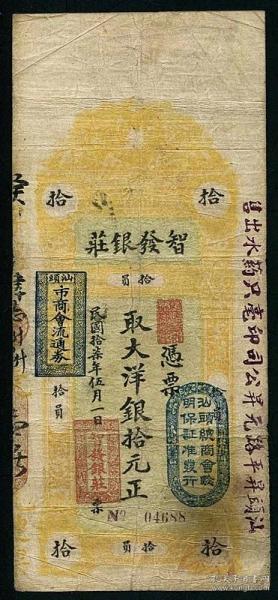 拾 拾
莊銀發智
員拾
憑票
取大洋銀拾元正
民國拾柒年伍月一日
票
汕頭
市商會流通券
拾員
拾員
汕頭總商會驗
明保証准發行
智發銀莊
No 04688
拾 員拾 拾
汕頭昇平路元昇公司印
售出水葯只
孔夫子旧书网